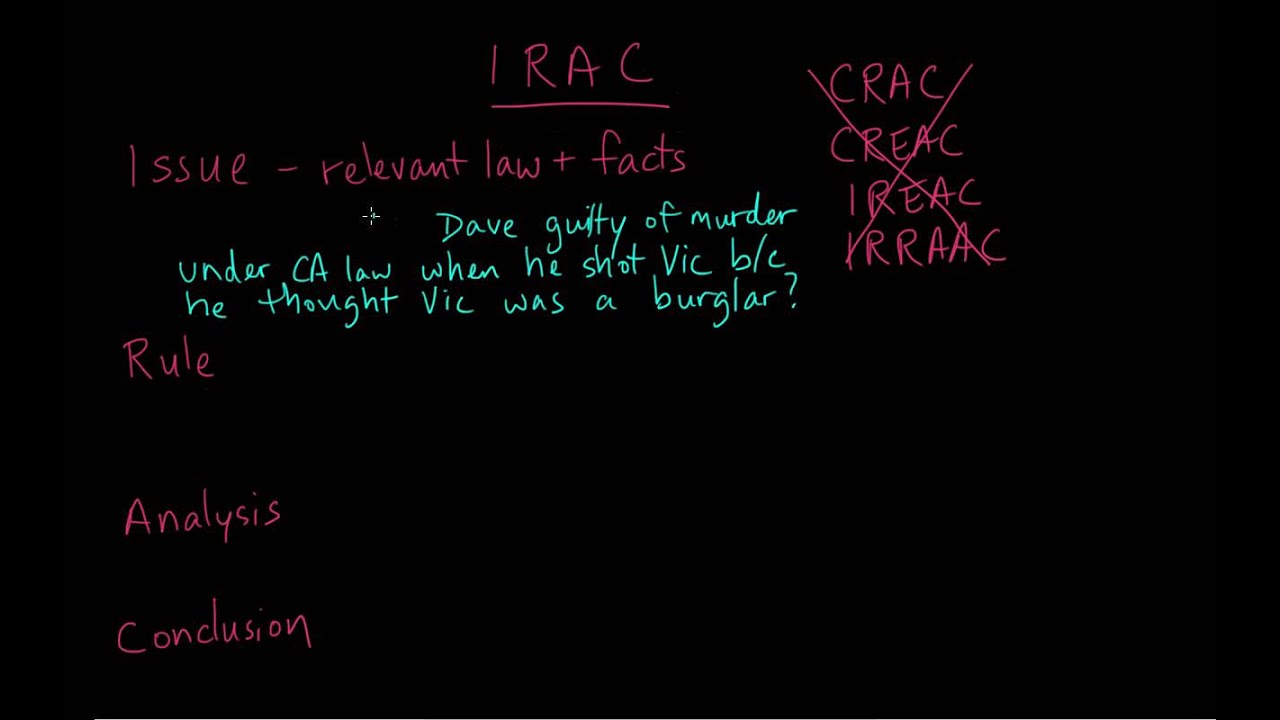 IRAC
CRAC
CREAC
IREAC
IRRAAC
Issue - relevant law + facts
Dave guilty of murder
under CA law when he shot Vic b/c
he thought Vic was a burglar?
Rule
Analysis
Conclusion